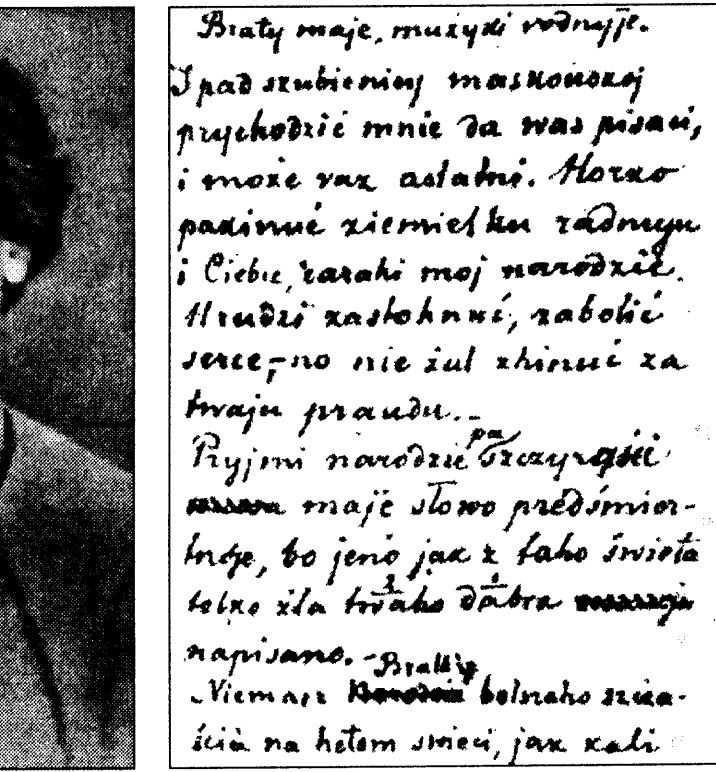 Braty maje, mużyki rodnyje.
I pad szubienicy maskouskoj
prychodzić mnie da was pisaci,
i może raz astatni. Horko
pakinuć ziemielku radnuju
i Ciebie, darahi moj narodzie.
Hrudzi zastohnuć, zabolić
serce, – no nie żal zhinuć za
twaju praudu. –
Pryjmi narodzie pa szczyrości
maje słowo predśmier-
tnoje, bo jeno jak z taho świeta
tolko dla 2 twaho 1 dabra
napisano. –
Niemasz Bratkie bolszaho szcza-
ścia na hetom świeci, jak kali